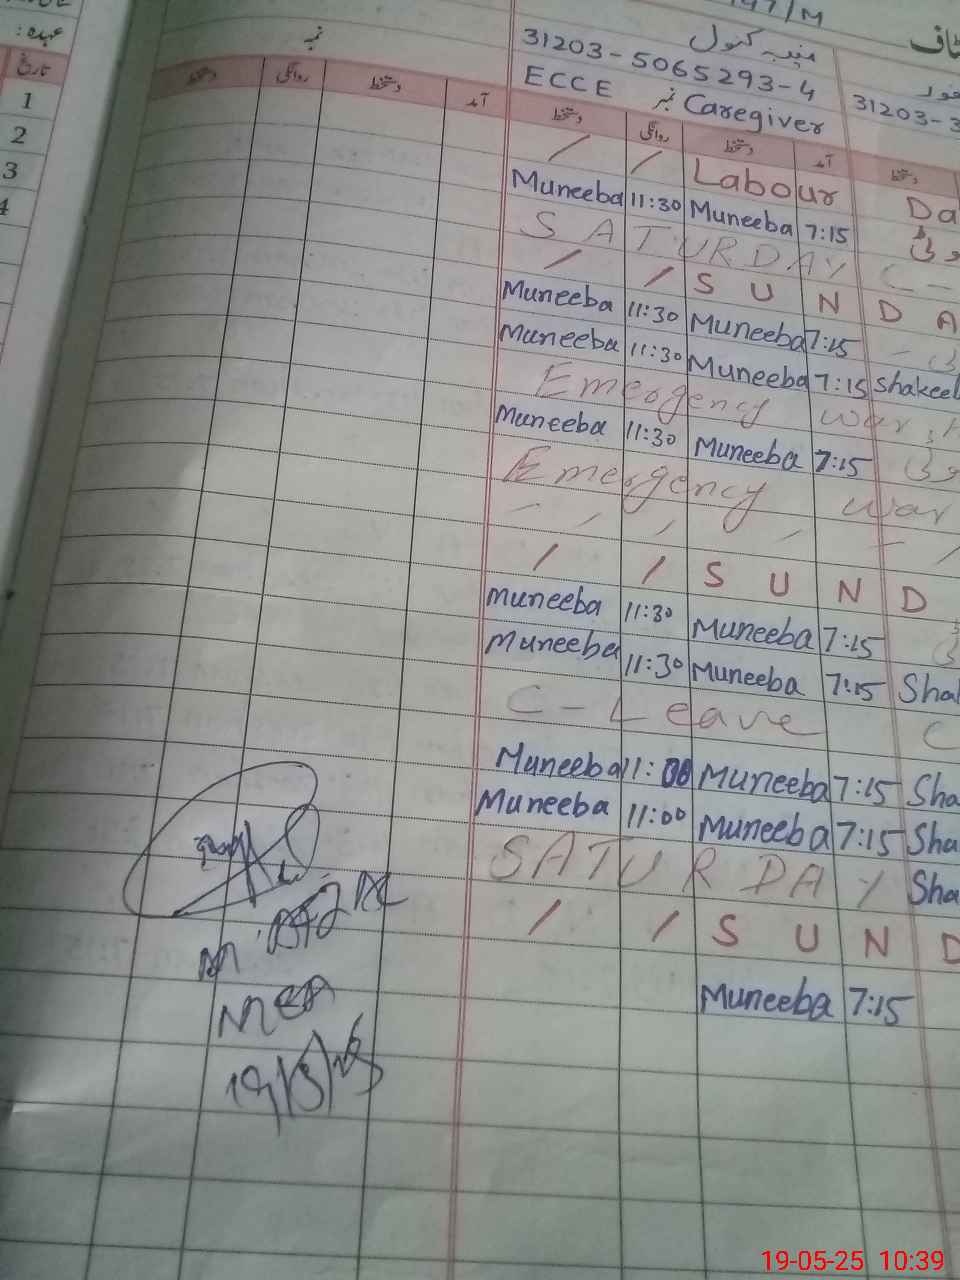 عہدہ:
تاریخ
1
2
3
4
نمبر
دستخط روانگی دستخط آمد
197/M
سٹاف
منیبہ کنول
31203-5065293-4
31203-3
ECCE نمبر Caregiver
دستخط روانگی دستخط آمد دستخط
/ / Labour Da
Muneeba 11:30 Muneeba 7:15
SATURDAY C-
/ / S U N D A
Muneeba 11:30 Muneeba 7:15
Muneeba 11:30 Muneeba 7:15 Shakeel
Emergency war
Muneeba 11:30 Muneeba 7:15
Emergency war
/ / S U N D
Muneeba 11:30 Muneeba 7:15
Muneeba 11:30 Muneeba 7:15 Sha
C-Leave C
Muneeba 11:00 Muneeba 7:15 Sha
Muneeba 11:00 Muneeba 7:15 Sha
SATURDAY Sha
/ / S U N D
Muneeba 7:15
MEA
19/5/25
19-05-25 10:39